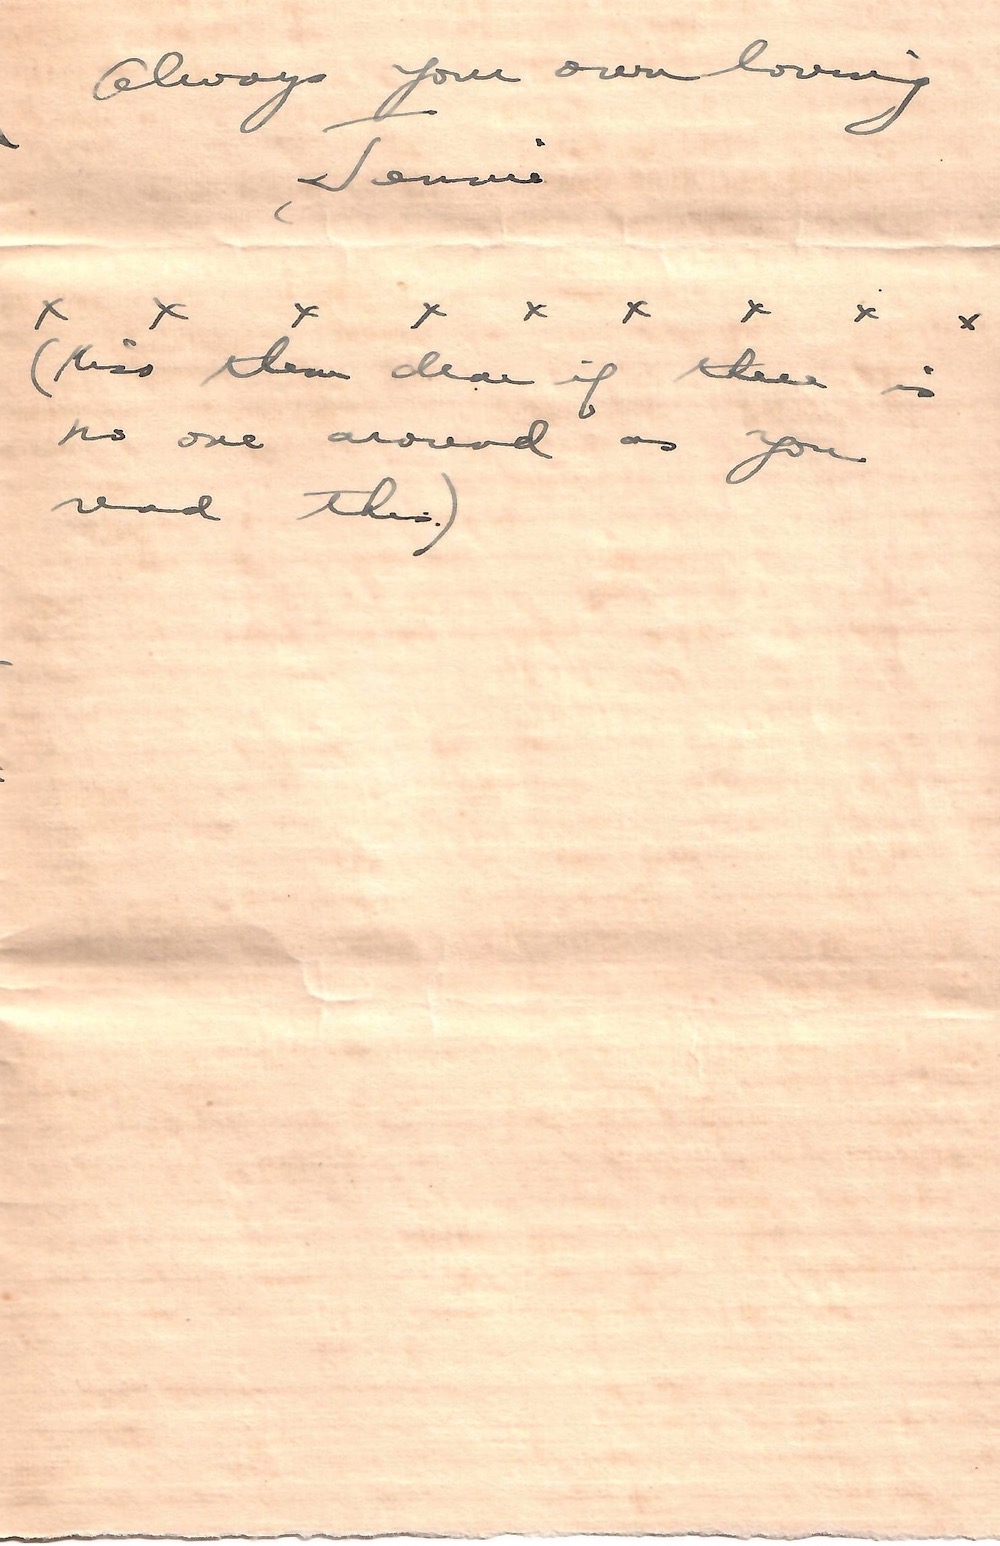 Always your own loving
Jennie
x x x x x x x x x
(Kiss them dear if there is
no one around as you
read this.)